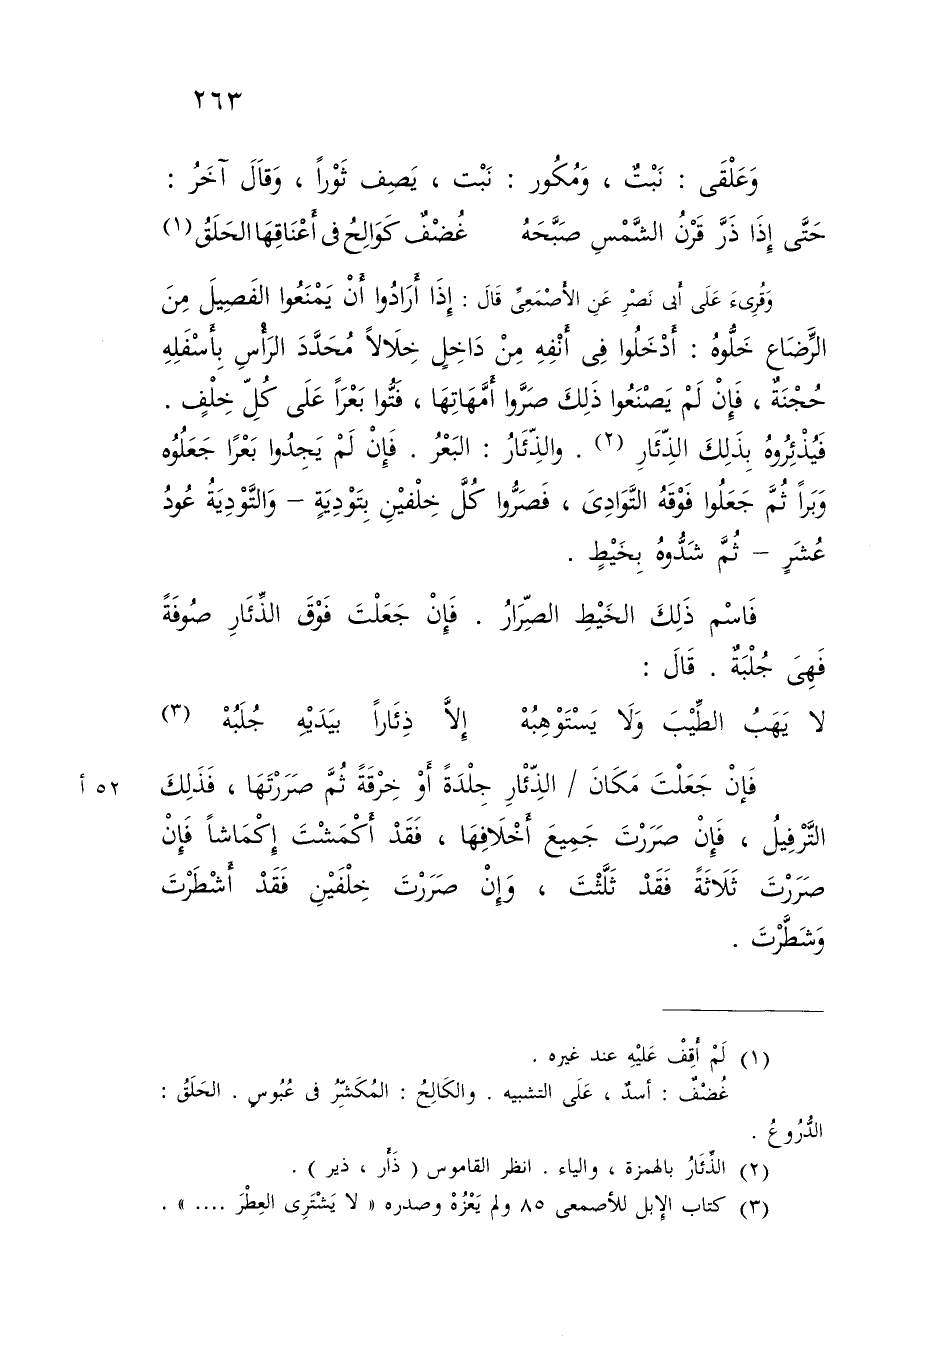 ٢٦٣
وَعَلْقَى : نَبْتٌ ، وَمُكُور : نَبْت ، يَصِف ثَوْراً ، وَقَالَ آخَرُ :
حَتَّى إِذَا ذَرَّ قَرْنُ الشَّمْسِ صَبَّحَهُ غُضْفٌ كَوَالِحُ فى أَعْنَاقِهَا الحَلَقُ (١)
وَقُرِىءَ عَلَى أَبى نَصْرٍ عَنِ الأَصْمَعِىِّ قَالَ : إِذَا أَرَادُوا أَنْ يَمْنَعُوا الفَصِيلَ مِنَ
الرَّضَاعِ خَلُّوهُ : أَدْخَلُوا فِى أَنْفِهِ مِنْ دَاخِلٍ خِلَالاً مُحَدَّدَ الرَأْسِ بِأَسْفَلِهِ
حُجْنَةٌ ، فَإِنْ لَمْ يَصْنَعُوا ذَلِكَ صَرَّوا أُمَّهَاتِهَا ، فَتُّوا بَعْرَاً عَلَى كُلِّ خِلْفٍ .
فَيُذْئِرُوهُ بِذَلِكَ الذِّئَارِ (٢) . والذِّئَارُ : البَعْرُ . فَإِنْ لَمْ يَجِدُوا بَعْرًا جَعَلُوُه
وَبَراً ثُمَّ جَعَلُوا فَوْقَهُ التَّوَادِىَ ، فَصَرُّوا كُلَّ خِلْفَيْنِ بِتَوْدِيَةٍ – وَالتَّوْدِيَةُ عُودُ
عُشَرٍ – ثُمَّ شَدُّوهُ بِخَيْطٍ .
فَاسْم ذَلِكَ الخَيْطِ الصِّرَارُ . فَإِنْ جَعَلْتَ فَوْقَ الذِّئَارِ صُوفَةً
فَهِىَ جُلْبَةٌ . قَالَ :
لا يَهَبُ الطِّيْبَ وَلَا يَسْتَوْهِبُهْ إِلاَّ ذِئَاراً بِيَدَيْهِ جُلَبُهْ (٣)
فَإِنْ جَعَلْتَ مَكَانَ / الذِّئْارِ جِلْدَةً أَوْ خِرْقَةً ثُمَّ صَرَرْتَهَا ، فَذَلِكَ ٥٢ أ
التَّرْفِيلُ ، فَإِنْ صَرَرْتَ جَمِيعَ أَخْلَافِهَا ، فَقَدْ أَكْمَشْتَ إِكْمَاشاً فَإِنْ
صَرَرْتَ ثَلَاثَةً فَقَدْ ثَلَّثْتَ ، وَإِنْ صَرَرْتَ خِلْفَيْنِ فَقَدْ أَشْطَرْتَ
وَشَطَّرْتَ .
(١) لَمْ أَقِفْ عَلَيْهِ عند غيره .
غُضْفٌ : أسدٌ ، عَلَى التشبيه . والكَالِحُ : المُكَشِّرُ فى عُبُوسٍ . الحَلَقُ :
الدُّرُوعُ .
(٢) الذِّئَارُ بالهمزة ، والياء . انظر القاموس ( ذَأَر ، ذير ) .
(٣) كتاب الإبل للأصمعى ٨٥ ولم يَعْزُهْ وصدره « لا يَشْتَرِى العِطْرَ .... » .